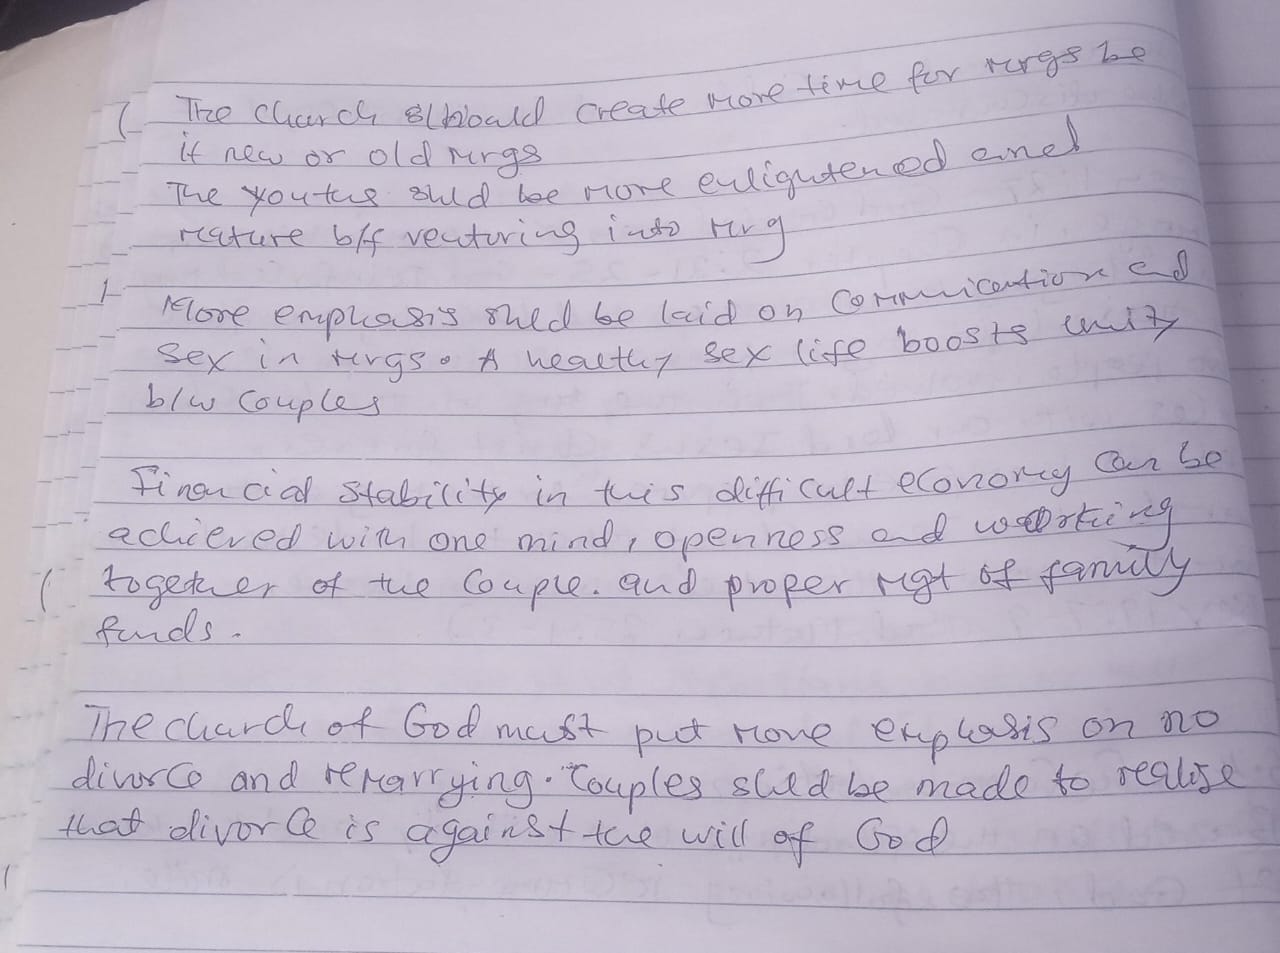 The church should create more time for mrgs be
it new or old mrgs
The youths shld be more enlightened and
mature b/f venturing into mrg
More emphasis shld be laid on Communication ad
Sex in mrgs. A healthy sex life boosts unity
b/w couples
Financial stability in this difficult economy can be
achieved with one mind, openness and working
together of the couple. and proper mgt of family
funds.
The church of God must put more emphasis on no
divorce and remarrying. Couples shld be made to realise
that divorce is against the will of God